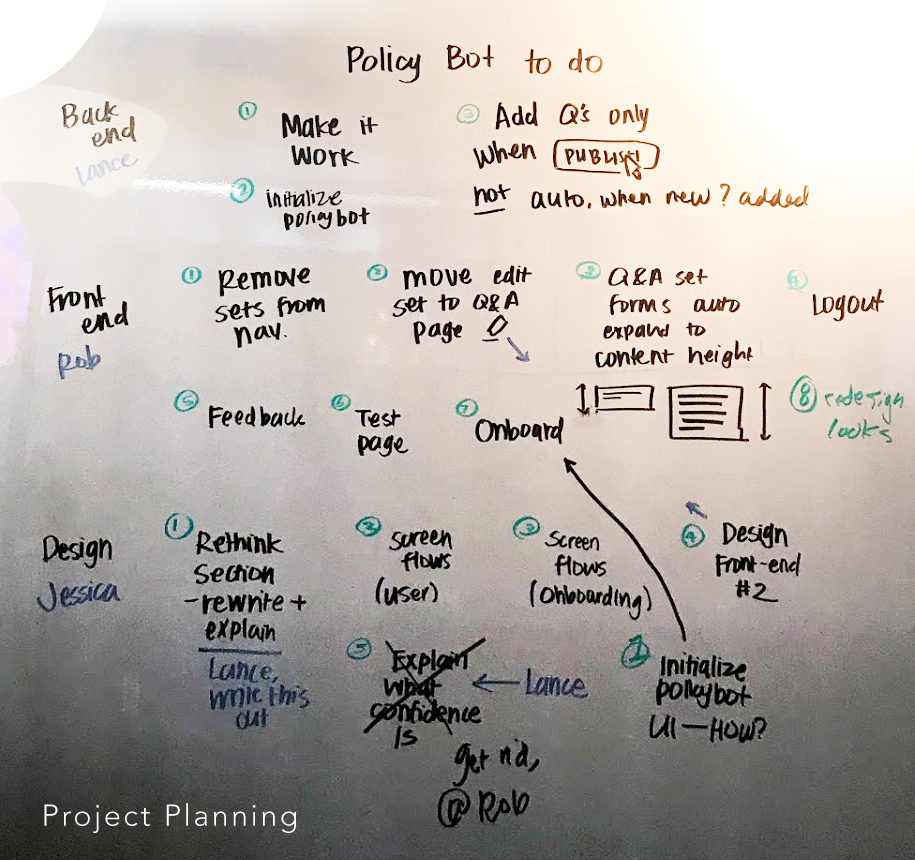 Policy Bot to do
Back
end
Lance
① Make it
work
② initialize
policybot
③ Add Q's only
when PUBLISH
not auto, when new ? added
Front
end
Rob
① Remove
sets from
nav.
② move edit
set to Q&A
page
③ Q&A set
forms auto
expand to
content height
④ Logout
⑤ Feedback
⑥ Test
page
⑦ Onboard
⑧ redesign
looks
Design
Jessica
① Rethink
section
-rewrite +
explain
Lance,
write this
out
② screen
flows
(user)
③ Screen
flows
(Onboarding)
④ Design
Front-end
#2
⑤ Explain
what
confidence
is
← Lance
get rid,
@ Rob
Initialize
policybot
UI — HOW?
Project Planning